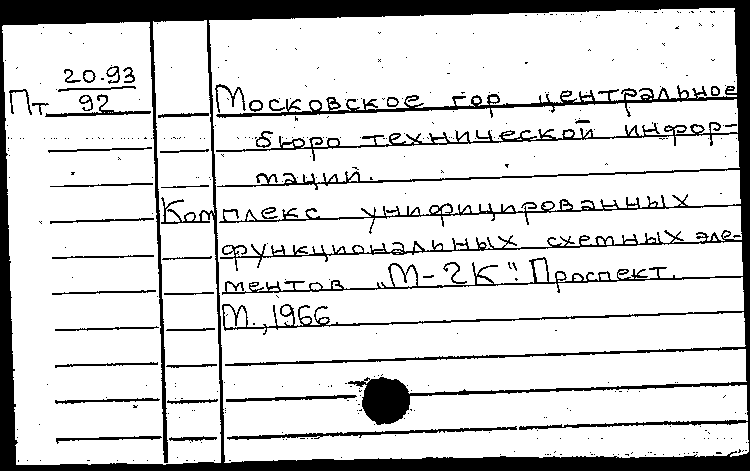 20.93
Пт 92
Московское гор. центральное
бюро технической инфор-
маций.
Комплекс унифицированных
функциональных схемных эле-
ментов „М-2К". Проспект.
М., 1966.